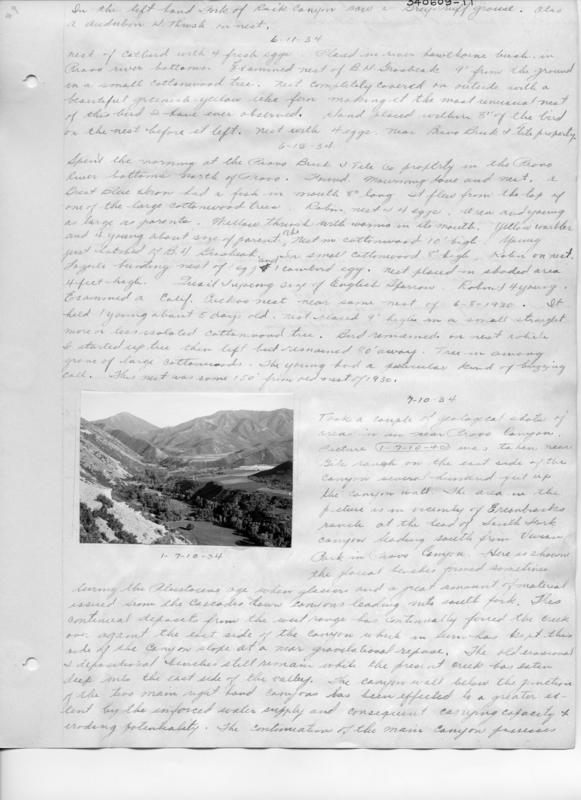 340609-11
In the left hand Fork of Rock Canyon saw a Grey ruff grouse. Also
a Audubon H. Thrush on nest.
6-11-34
nest of Catbird with 4 fresh eggs Placed in river hawthorne bush in
Provo river bottoms. Examined nest of B.H. Grosbeak 9' from the ground
in a small cottonwood tree. Nest completely covered on outside with a
beautiful greenish-yellow like fern making it the most unusual nest
of this bird I have ever observed. Hand placed within 3" of the bird
on the nest before it left. Nest with 4 eggs. Near Provo Brick & tile property
6-12-34
Spent the morning at the Provo Brick & Tile Co property in the Provo
River bottoms north of Provo. Found Mourning dove and nest. A
Great Blue Heron had a fish in mouth 8" long. It flew from the top of
one of the large cottonwood trees. Robin nest & 4 eggs. Wren and young
as large as parents. Willow thrush with worms in its mouth. Yellow warbler
and 2 young about size of parent. Nest in cottonwood 10' high. Young
just hatched of B.H. Grosbeak in small cottonwood 8' high. Robin on nest.
building nest of 1 egg and 1 cowbird egg. nest placed in shaded area
4-feet-high. size of English Sparrow. Robin & 4 young.
Examined a Calif. Cuckoo nest near same nest of 6-8-1930. It
held 1 young about 5 days old. nest placed 9' high in a small straight
more or less isolated cottonwood tree. Bird remained on nest while
I started up tree then left but remained 20' away. Tree in among
grove of large cottonwoods. The young had a peculiar kind of buzzing
call. This nest was some 150' from old nest of 1930.
7-10-34
Took a couple of geological shots of
areas in an near Provo Canyon.
Picture 1-7-10-40 was taken near
ranch on the east side of the
Canyon several hundred feet up
the Canyon wall. The area in the
picture is in vicinity of
ranch at the head of South Fork
canyon leading south from Vivian
Park in Provo Canyon. Here is shown
the fluvial benches formed sometimes
1-7-10-34
during the Pleistocene age when glaciers and a great amount of material
issued from the Cascades down canyons leading into south fork. This
continual deposits from the west range has continually forced the creek
over against the east side of the Canyon which in turn has kept this
side of the Canyon slope at a near gravitational repose. The old erosional
& depositional benches still remain while the present creek has eaten
deep into the east side of the valley. The canyon wall below the junction
of the two main right hand canyons has been effected to a greater ex-
tent by the enforced water supply and consequent carrying capacity &
eroding potentiality. The continuation of the main canyon possesses